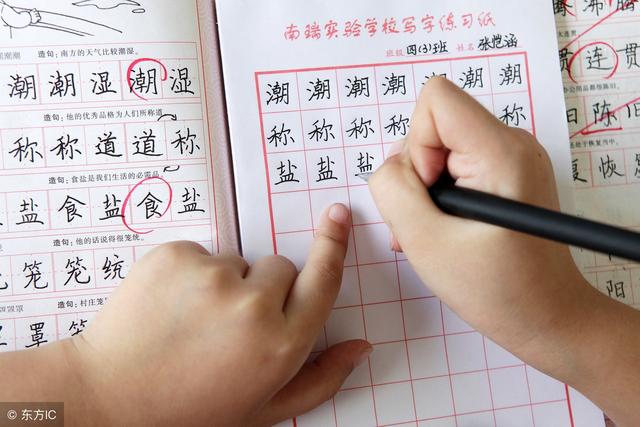 造句：南方的天气比较潮湿。
潮潮湿潮湿
造句：他的优秀品格为人们所称道
称称道道称
造句：食盐是我们生活的必需
盐食盐食盐
造句：他的话说得很笼统。
笼笼统
造句：村庄笼
罩
南瑞实验学校写字练习纸
班级 四(3)班 姓名 张恺涵
潮潮潮潮潮潮潮
称称称称称
盐盐盐
贯
贯连贯
旧陈
恢
阳
© 东方IC